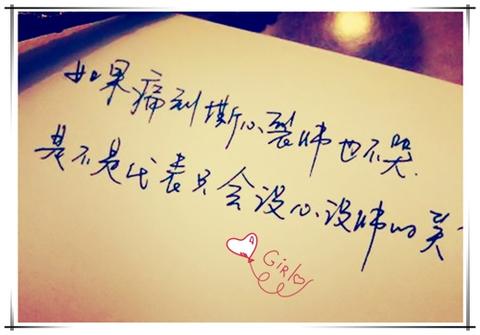 如果痛到撕心裂肺也不哭.
是不是代表只会没心没肺的笑
GiRl